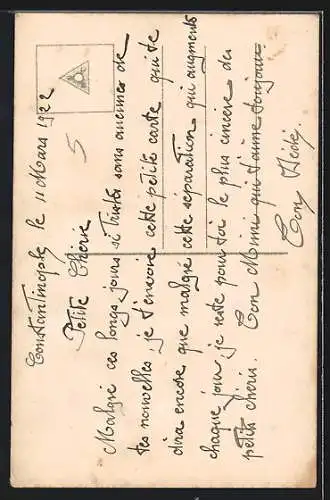 Constantinople le 11 Mars 1922
5
Petite Chérie
Malgré ces longs jours si tristes sans aucunes de
tes nouvelles, je t'envoie cette petite carte qui te
dira encore que malgré cette séparation qui augmente
chaque jour, je reste pour toi le plus sincère des
petits chéris. Ton Mimi qui t'aime toujours
Ton